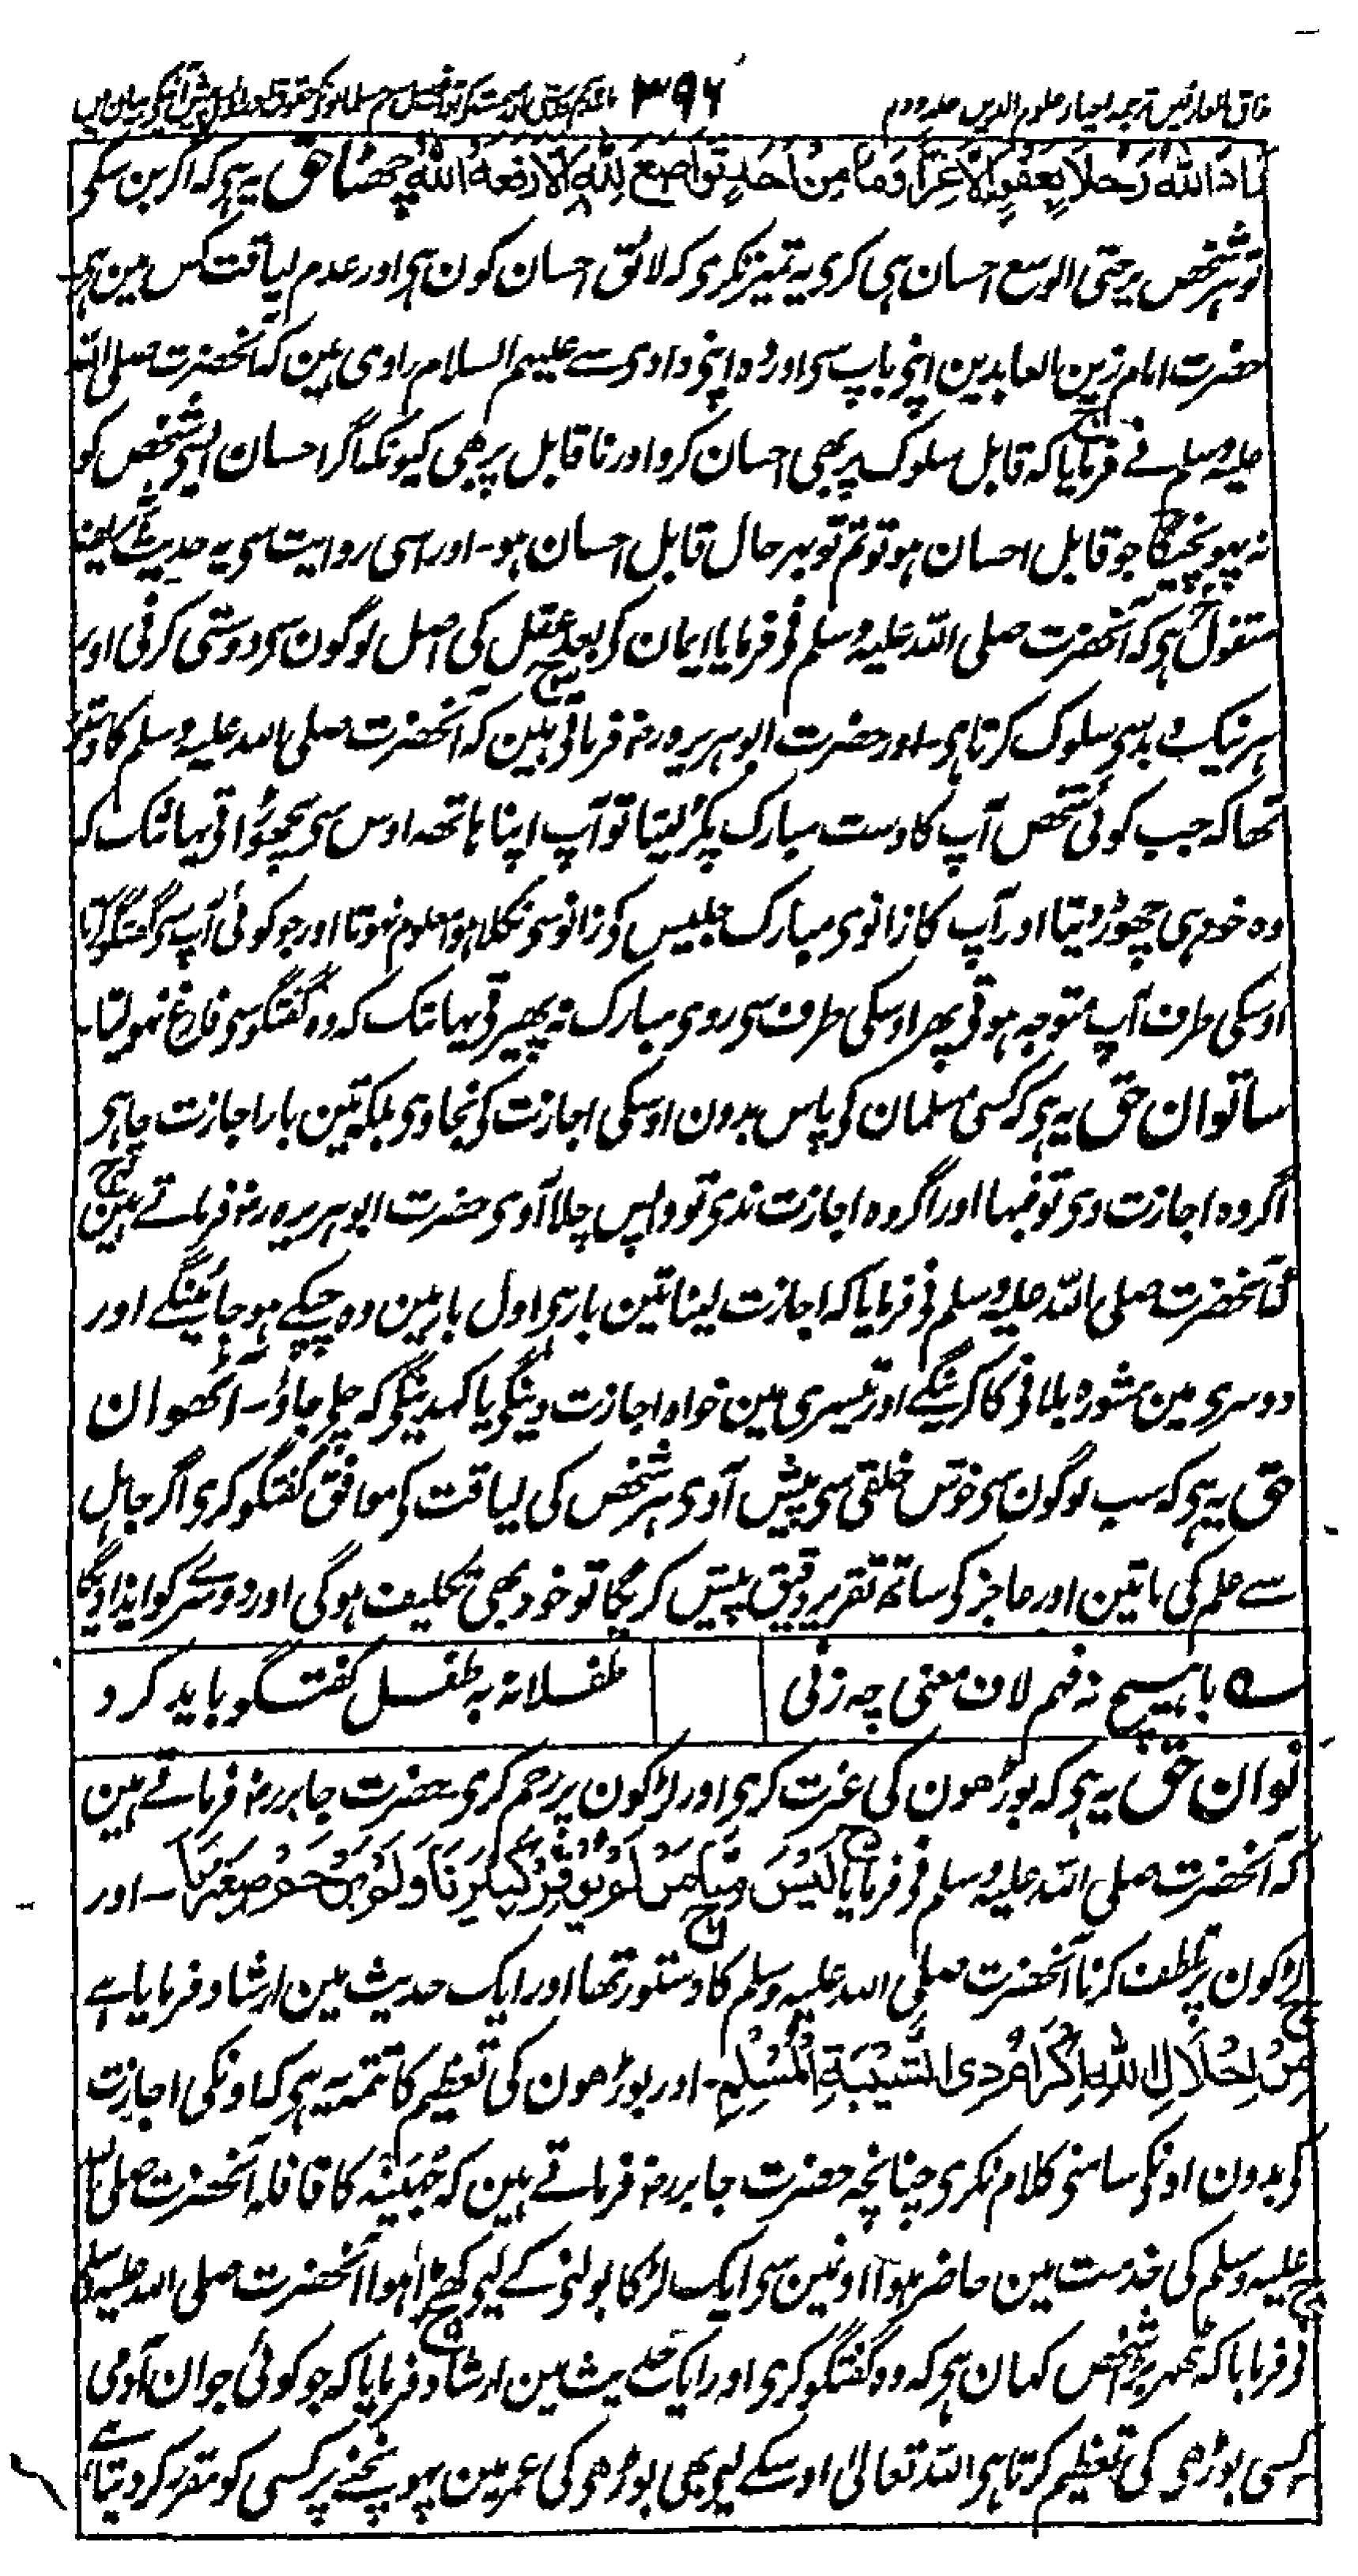 مذاق العارفین ترجمہ احیاء علوم الدین جلد دوم ۳۹۶
زَادَ اللهُ رَجُلًا بِعَفْوٍ اِلَّا عِزًّا وَمَا مِنْ اَحَدٍ تَوَاضَعَ لِلّٰهِ اِلَّا رَفَعَهُ اللهُ چھٹا حق یہ ہی کہ اگر بن سکی
تو ہر شخص پر حتی الوسع احسان ہی کری یہ تمیز نکری کہ لائق احسان کون ہی اور عدم لیاقت کس مین ہی
حضرت امام زین العابدین اپنی باپ سی اور وہ اپنی دادی سے علیہم السلام راوی ہین کہ آنحضرت صلی اللہ
علیہ وسلم نے فرمایا کہ قابل سلوک پر بھی احسان کرو اور ناقابل پر بھی کیونکہ اگر احسان ایسی شخص کو
نہ پہونچیگا جو قابل احسان ہو تو تم تو بہر حال قابل احسان ہو۔ اور اسی روایت سی یہ حدیث
منقول ہی کہ آنحضرت صلی اللہ علیہ وسلم نی فرمایا ایمان کی بعد عقل کی اصل لوگون سی دوستی کرنی اور
ہر نیک و بد سی سلوک کرنا ہی۔ اور حضرت ابو ہریرہ رضہ فرماتی ہین کہ آنحضرت صلی اللہ علیہ وسلم کا دستور
تھا کہ جب کوئی شخص آپ کا دست مبارک پکڑ لیتا تو آپ اپنا ہاتھہ اوس سی نچھڑاتی یہانتک کہ
وہ خود ہی چھوڑ دیتا اور آپ کا زانوی مبارک جلیس کی زانو سی نکلا ہوا معلوم نہوتا اور جو کوئی آپ سی گفتگو کرتا
اوسکی طرف آپ متوجہ ہوتی پھر اوسکی طرف سی روی مبارک نہ پھیرتی یہانتک کہ وہ گفتگو سی فارغ نہولیتا۔
ساتوان حق یہ ہی کہ کسی مسلمان کی پاس بدون اوسکی اجازت کی نجاوی بلکہ تین بار اجازت چاہی
اگر وہ اجازت دی تو فبہا اور اگر وہ اجازت ندی تو واپس چلا آوی حضرت ابو ہریرہ رضہ فرماتے ہین
کہ آنحضرت صلی اللہ علیہ وسلم نی فرمایا کہ اجازت لینا تین بار ہی اول بار مین وہ چپکے ہو جائینگے اور
دوسری مین مشورہ بلانی کا کرینگے اور تیسری مین خواہ اجازت دینگی یا کہدینگی کہ چلی جاؤ۔ آٹھوان
حق یہ ہی کہ سب لوگون سی خوش خلقی سی پیش آوی ہر شخص کی لیاقت کی موافق گفتگو کری اگر جاہل
سے علم کی باتین اور عاجز کی ساتھ تقریر دقیق پیش کریگا تو خود بھی تکلیف ہوگی اور دوسرے کو ایذا دیگا
با ہیچ نہ فہم لاف معنی چہ زنی طفلانہ بہ طفل گفتگو باید کرد
نوان حق یہ ہی کہ بوڑھون کی عزت کری اور لڑکون پر رحم کری حضرت جابر رضہ فرماتے ہین
کہ آنحضرت صلی اللہ علیہ وسلم نی فرمایا لَيْسَ مِنَّا مَنْ لَمْ يُوَقِّرْ كَبِيْرَنَا وَلَمْ يَرْحَمْ صَغِيْرَنَا۔ اور
لڑکون پر تلطف کرنا آنحضرت صلی اللہ علیہ وسلم کا دستور تھا اور ایک حدیث مین ارشاد فرمایا ہے
مِنْ اِجْلَالِ اللهِ اِكْرَامُ ذِى الشَّيْبَةِ الْمُسْلِمِ۔ اور بوڑھون کی تعظیم کا تتمہ یہ ہی کہ اونکی اجازت
کی بدون اونکی سامنی کلام نکری چنانچہ حضرت جابر رضہ فرماتے ہین کہ جُہَینہ کا قافلہ آنحضرت صلی اللہ
علیہ وسلم کی خدمت مین حاضر ہوا اونمین سی ایک لڑکا بولنی کے لیی کھڑا ہوا آنحضرت صلی اللہ علیہ وسلم
نی فرمایا کہ ٹھہر بڑا شخص کہان ہی کہ وہ گفتگو کری اور ایک حدیث مین ارشاد فرمایا کہ جو کوئی جوان آدمی
کسی بوڑھی کی تعظیم کرتا ہی اللہ تعالیٰ اوسکے لیی بھی بوڑھی کی عمر مین پہونچنے پر کسی کو مقرر کر دیتا ہے